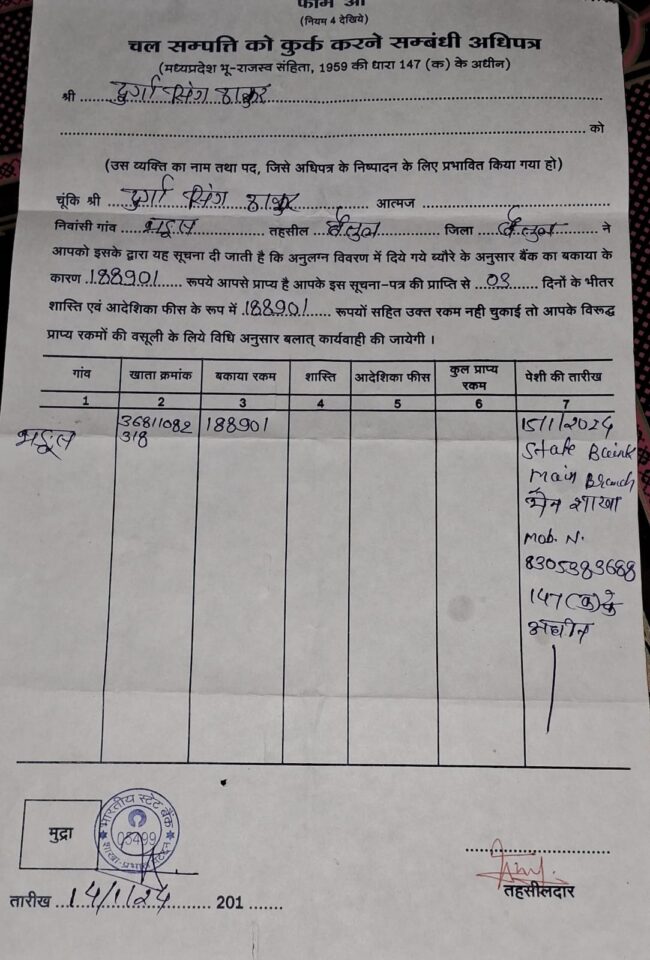 फार्म ओ
(नियम 4 देखिये)
चल सम्पत्ति को कुर्क करने सम्बंधी अधिपत्र
(मध्यप्रदेश भू-राजस्व संहिता, 1959 की धारा 147 (क) के अधीन)
श्री दुर्गा सिंग ठाकुर
को
(उस व्यक्ति का नाम तथा पद, जिसे अधिपत्र के निष्पादन के लिए प्रभावित किया गया हो)
चूंकि श्री दुर्गा सिंग ठाकुर आत्मज
निवांसी गांव भडूस तहसील बैतुल जिला बैतुल ने
आपको इसके द्वारा यह सूचना दी जाती है कि अनुलग्न विवरण में दिये गये ब्यौरे के अनुसार बैंक का बकाया के
कारण 188901 रूपये आपसे प्राप्य है आपके इस सूचना-पत्र की प्राप्ति से 03 दिनों के भीतर
शास्ति एवं आदेशिका फीस के रूप में 188901 रूपयों सहित उक्त रकम नही चुकाई तो आपके विरूद्ध
प्राप्य रकमों की वसूली के लिये विधि अनुसार बलात् कार्यवाही की जायेगी ।
गांव खाता क्रमांक बकाया रकम शास्ति आदेशिका फीस कुल प्राप्य रकम पेशी की तारीख
1 2 3 4 5 6 7
भडूस 36811082 318 188901 15/1/2024
State Bank
Main Branch
मेन शाखा
Mob. N.
8305383688
147 (क) के
अधीन
मुद्रा
भारतीय स्टेट बैंक
05499
तहसीलदार
तारीख 14/1/24 201